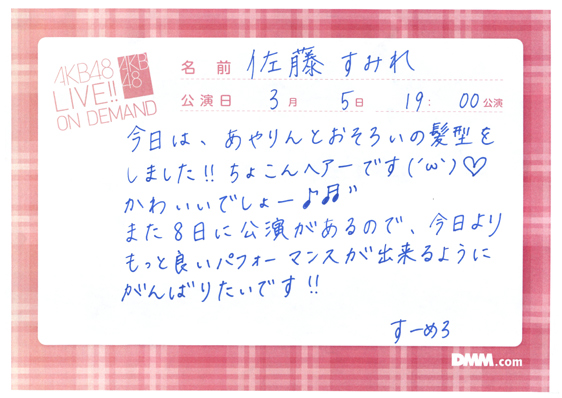 AKB48
LIVE!!
ON DEMAND
AKB
48
名前 佐藤 すみれ
公演日 3月 5日 19:00公演
今日は、あやりんとおそろいの髪型を
しました!!ちょこんヘアーです(´ω`)♡
かわいいでしょー♪♬"
また8日に公演があるので、今日より
もっと良いパフォーマンスが出来るように
がんばりたいです!!
すーめろ
DMM.com